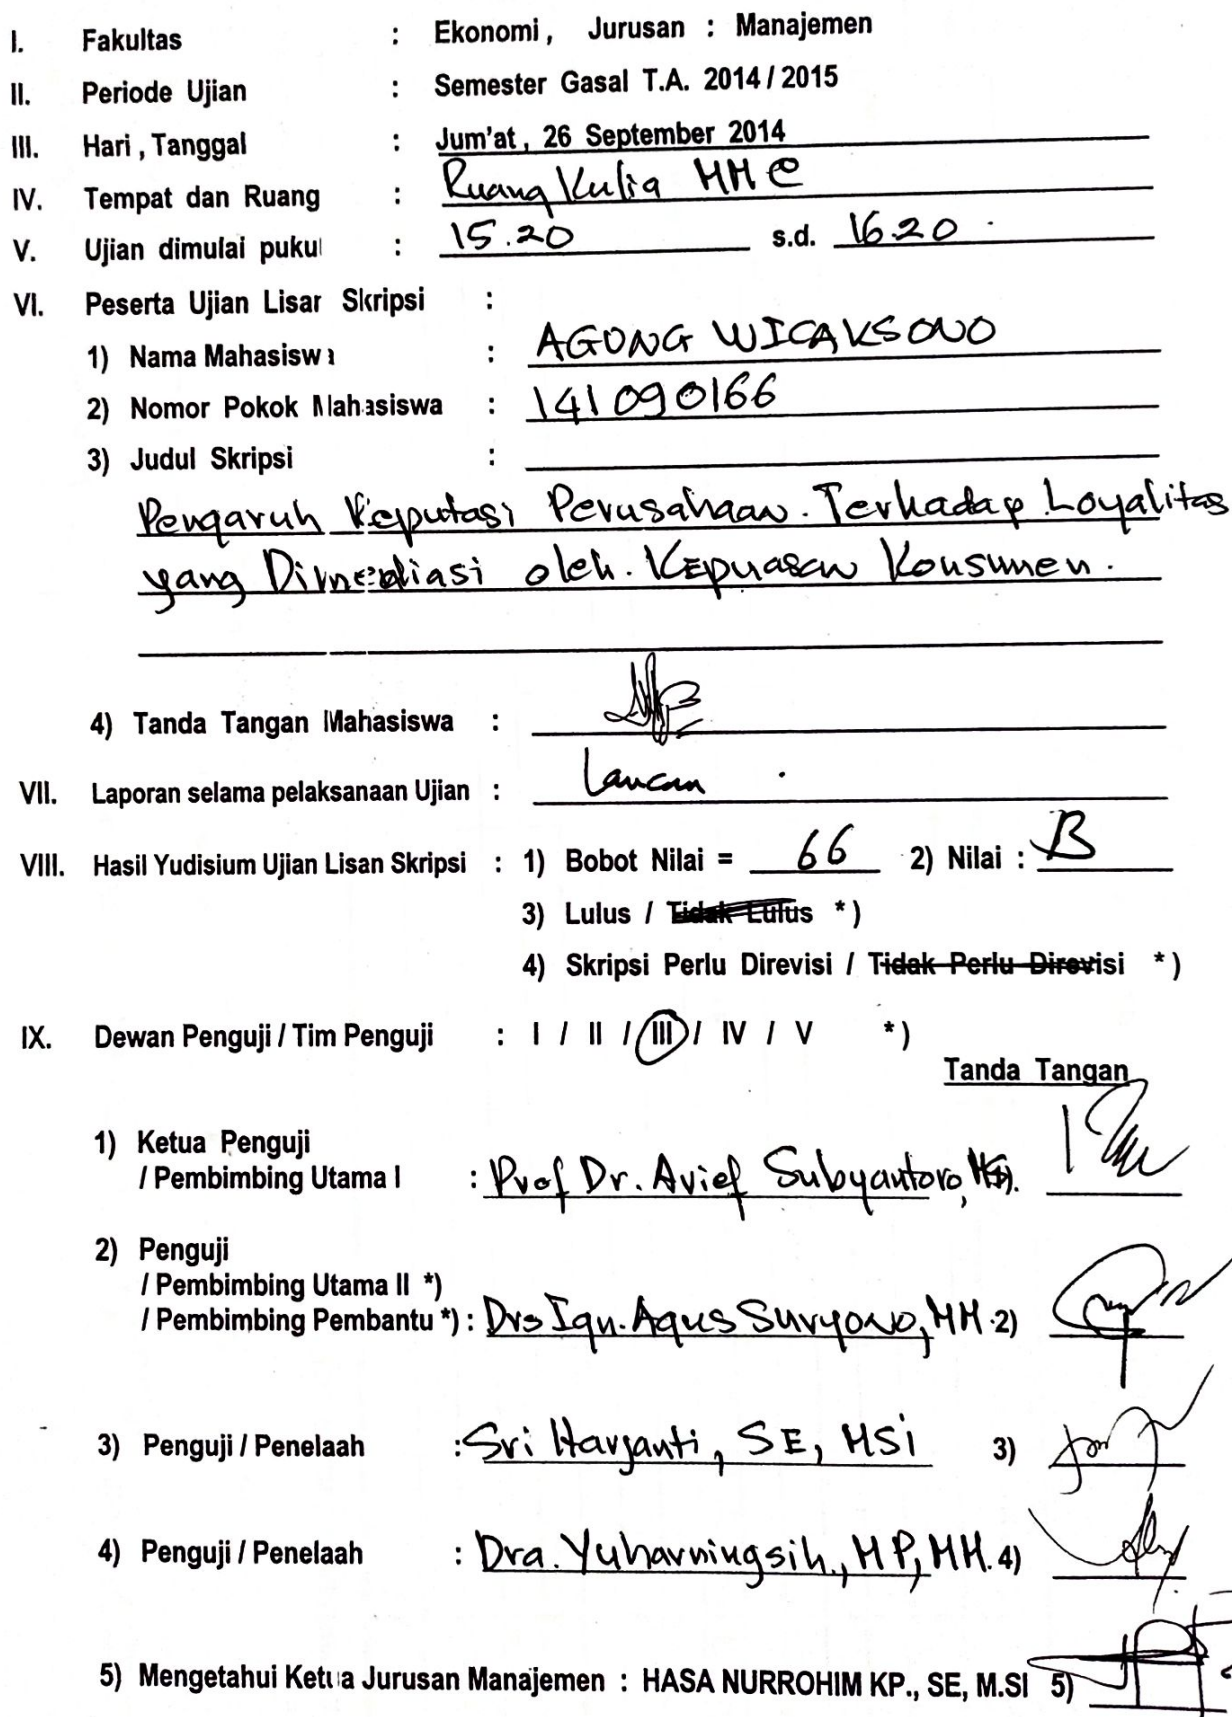 I. Fakultas : Ekonomi, Jurusan : Manajemen
II. Periode Ujian : Semester Gasal T.A. 2014 / 2015
III. Hari, Tanggal : Jum'at, 26 September 2014
IV. Tempat dan Ruang : Ruang Kulia MM C
V. Ujian dimulai pukul : 15.20 s.d. 16.20
VI. Peserta Ujian Lisan Skripsi :
1) Nama Mahasiswa : AGUNG WICAKSONO
2) Nomor Pokok Mahasiswa : 141090166
3) Judul Skripsi :
Pengaruh Reputasi Perusahaan Terhadap Loyalitas
yang Dimediasi oleh Kepuasan Konsumen.
4) Tanda Tangan Mahasiswa :
VII. Laporan selama pelaksanaan Ujian : Lancar
VIII. Hasil Yudisium Ujian Lisan Skripsi : 1) Bobot Nilai = 66 2) Nilai : B
3) Lulus / Tidak Lulus *)
4) Skripsi Perlu Direvisi / Tidak Perlu Direvisi *)
IX. Dewan Penguji / Tim Penguji : I / II / III / IV / V *)
Tanda Tangan
1) Ketua Penguji
/ Pembimbing Utama I : Prof Dr. Arief Subyantoro, 1)
2) Penguji
/ Pembimbing Utama II *)
/ Pembimbing Pembantu *) : Drs Ign. Agus Suryono, MM. 2)
3) Penguji / Penelaah : Sri Haryanti, SE, MSi 3)
4) Penguji / Penelaah : Dra. Yuharningsih, MP, MM. 4)
5) Mengetahui Ketua Jurusan Manajemen : HASA NURROHIM KP., SE, M.SI 5)